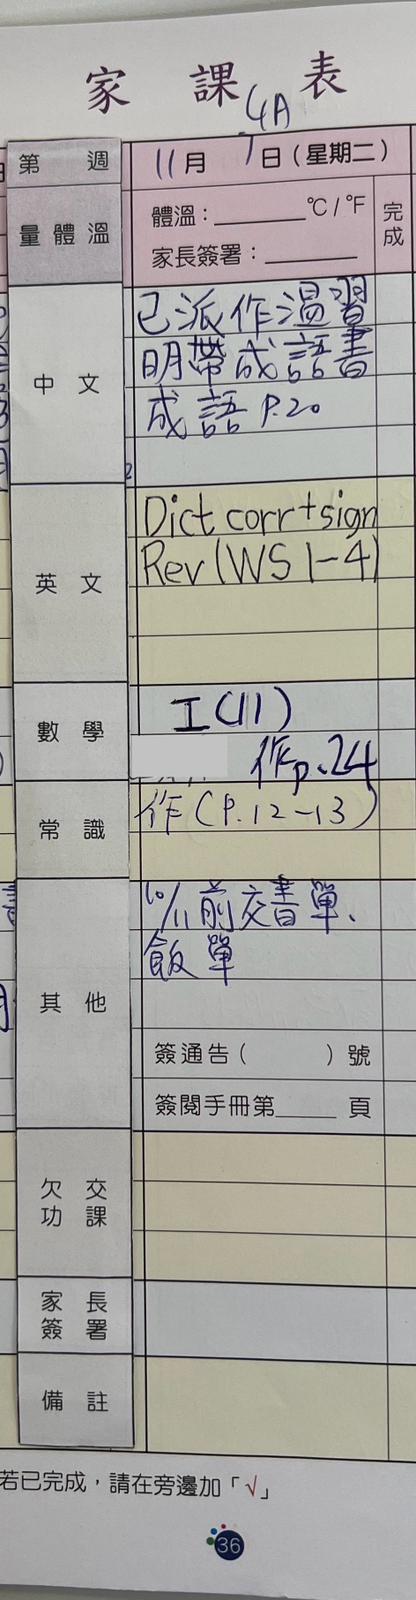 家 課 表
4A
第 週 11月 7日(星期二)
量體溫 體溫：________℃/℉ 完成
家長簽署：________
中 文 已派作溫習
明帶成語書
成語 P.20
英 文 Dict corr+sign
Rev(WS 1-4)
數 學 工(11)
作p.24
常 識 作(P.12-13)
其 他 10/11前交書單、
飯單
簽通告( )號
簽閱手冊第_____頁
欠 交
功 課
家 長
簽 署
備 註
若已完成，請在旁邊加「√」
36